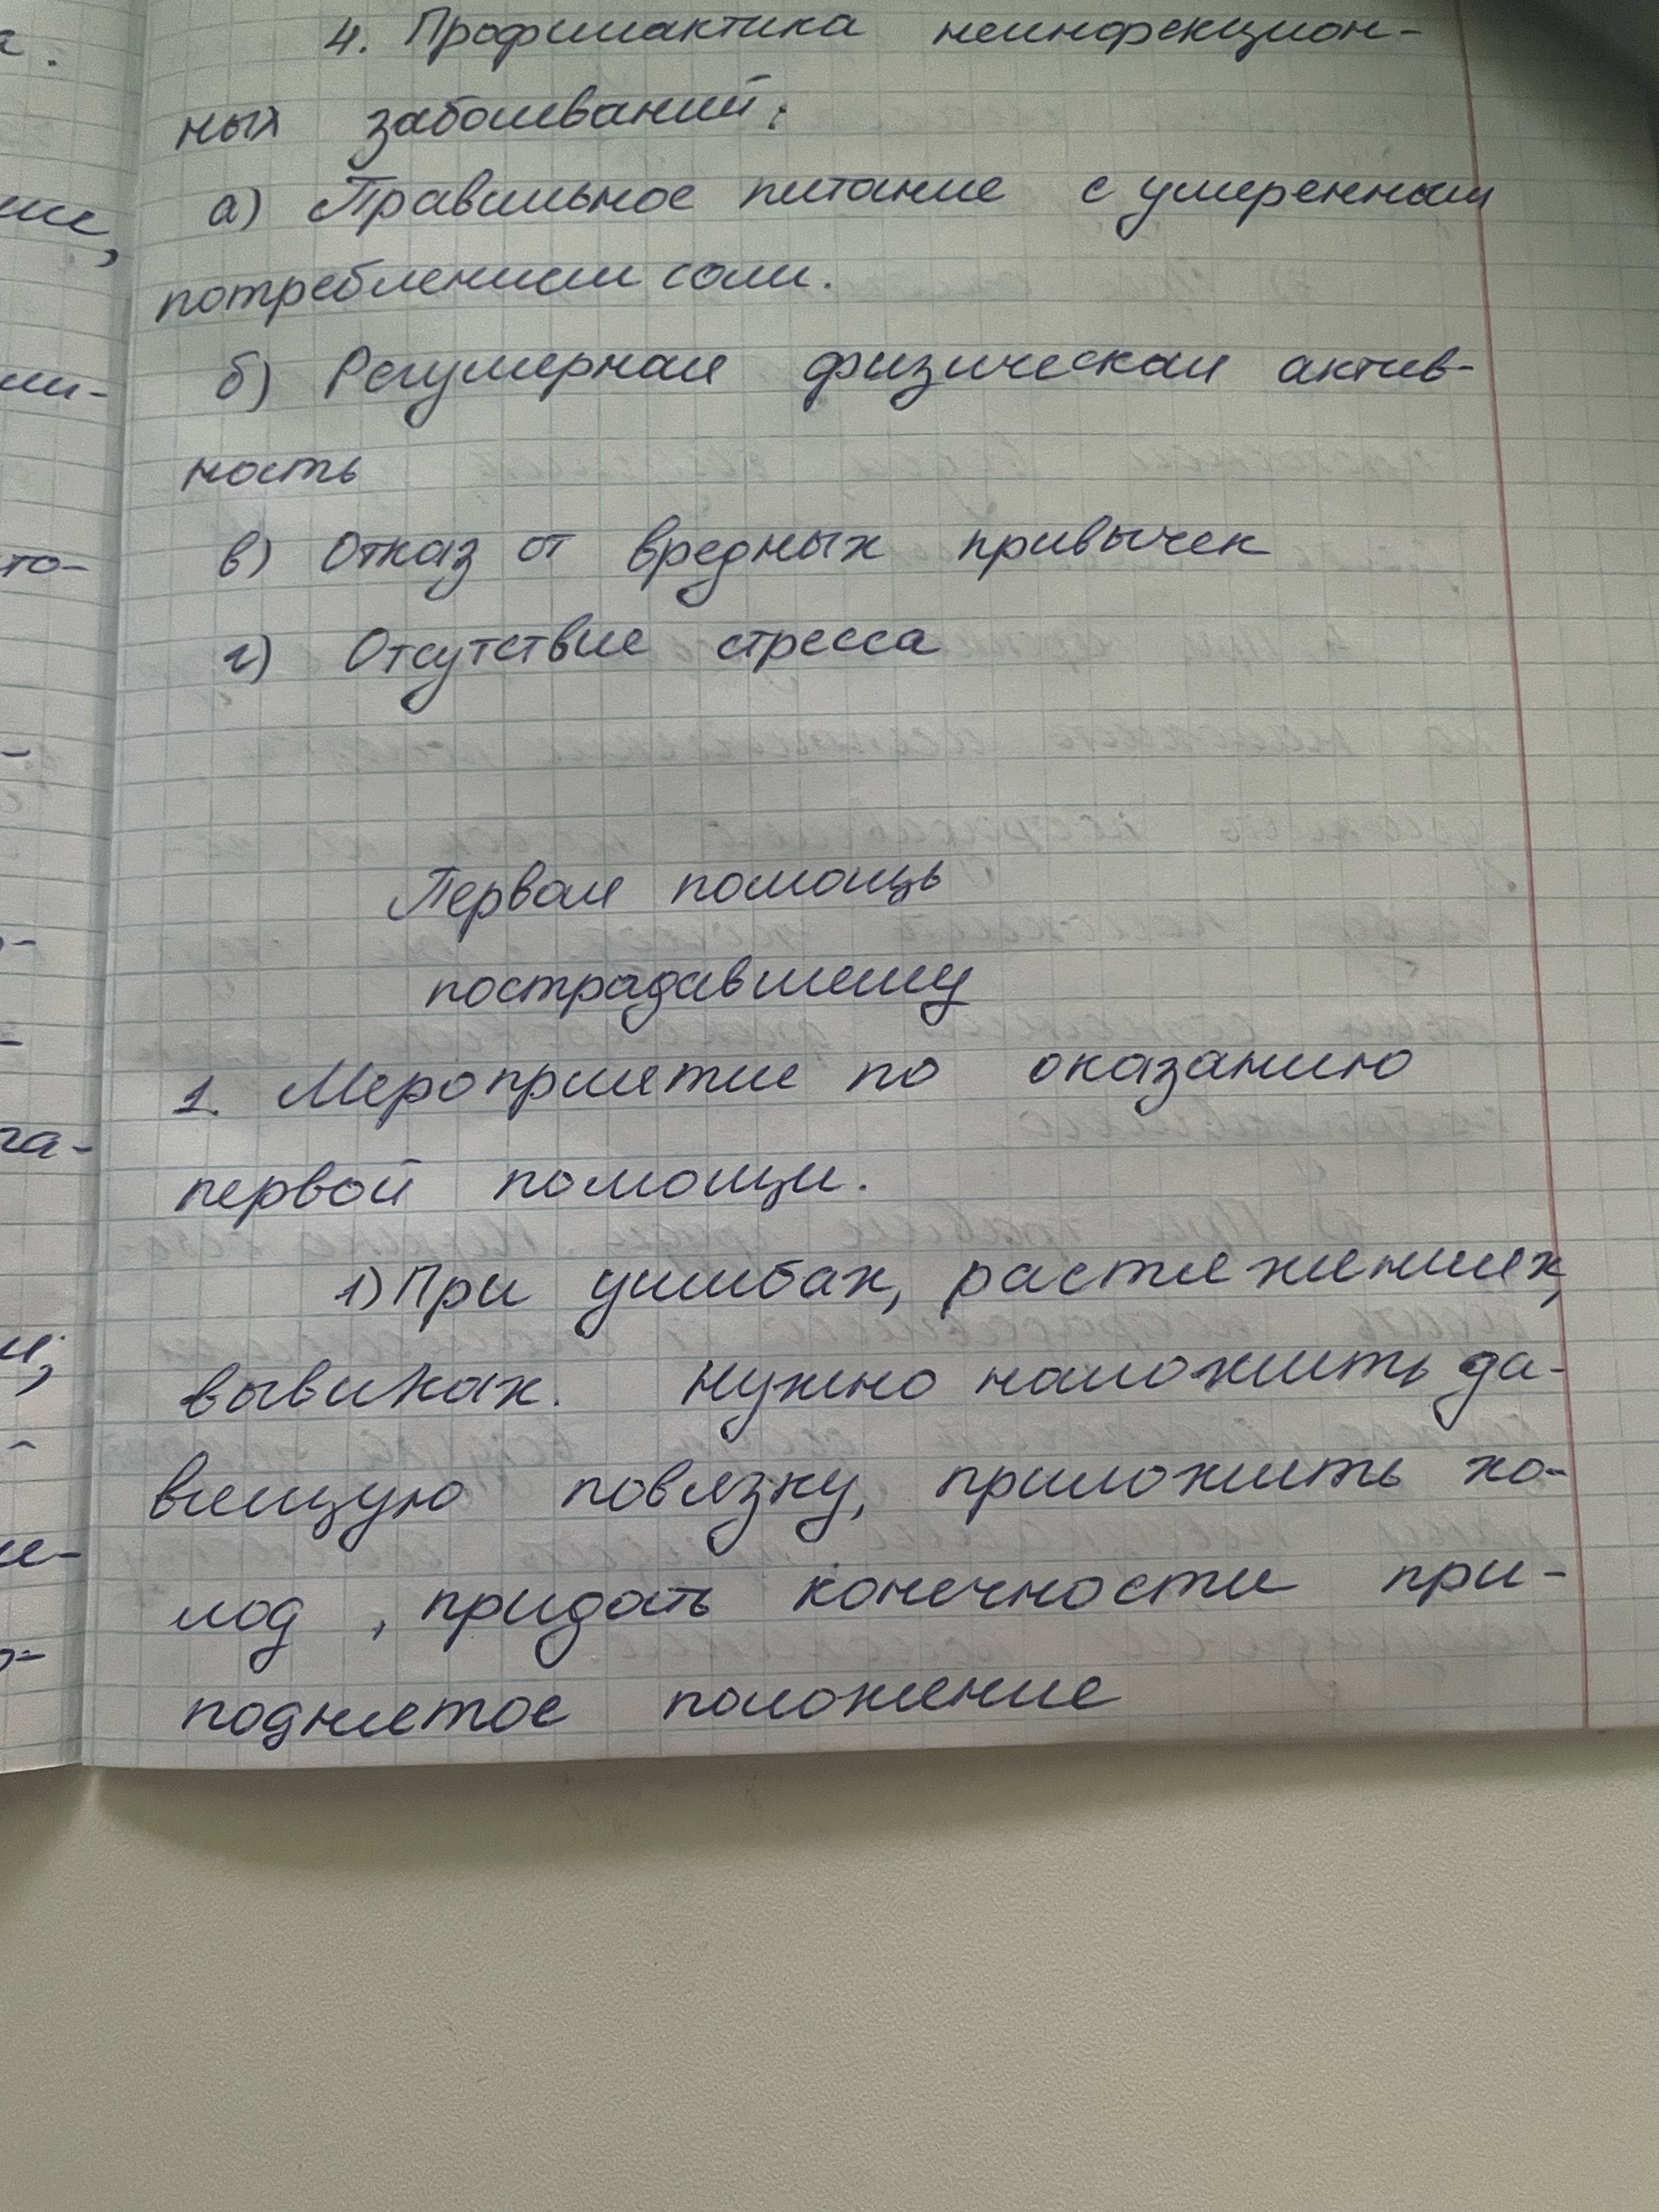 4. Профилактика неинфекцион-
ных заболеваний:
а) Правильное питание с умеренным
потреблением соли.
б) Регулярная физическая актив-
ность
в) Отказ от вредных привычек
г) Отсутствие стресса
Первая помощь
пострадавшему
1. Мероприятие по оказанию
первой помощи.
1) При ушибах, растяжениях,
вывихах. Нужно наложить да-
вящую повязку, приложить хо-
лод, придать конечности при-
поднятое положение